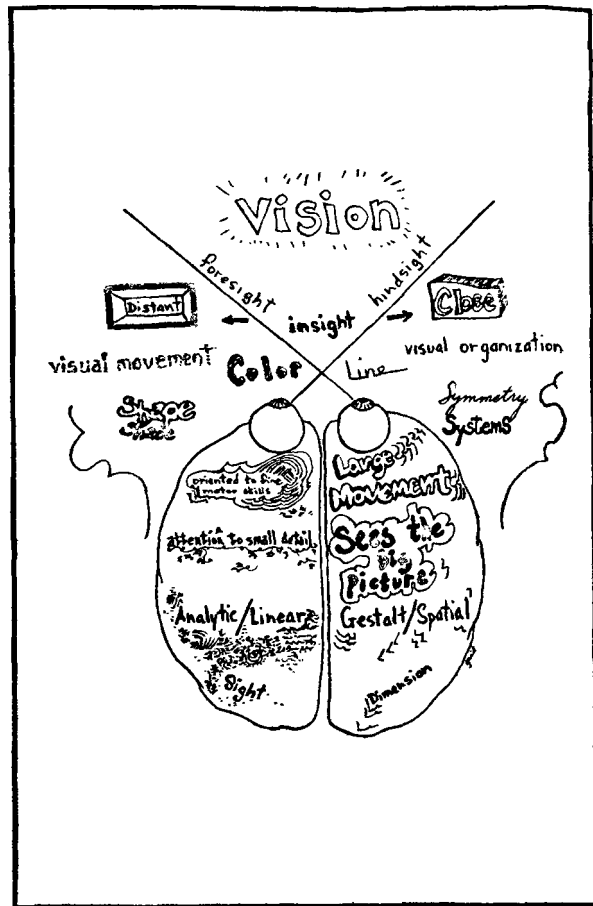 Vision
foresight
hindsight
Distant
insight
Close
visual movement
Color
Line
visual organization
Shape
Space
Symmetry
Systems
oriented to fine
motor skills
attention to small detail
Analytic/Linear
Sight
Large
Movement
Sees the
big
picture
Gestalt/Spatial
Dimension